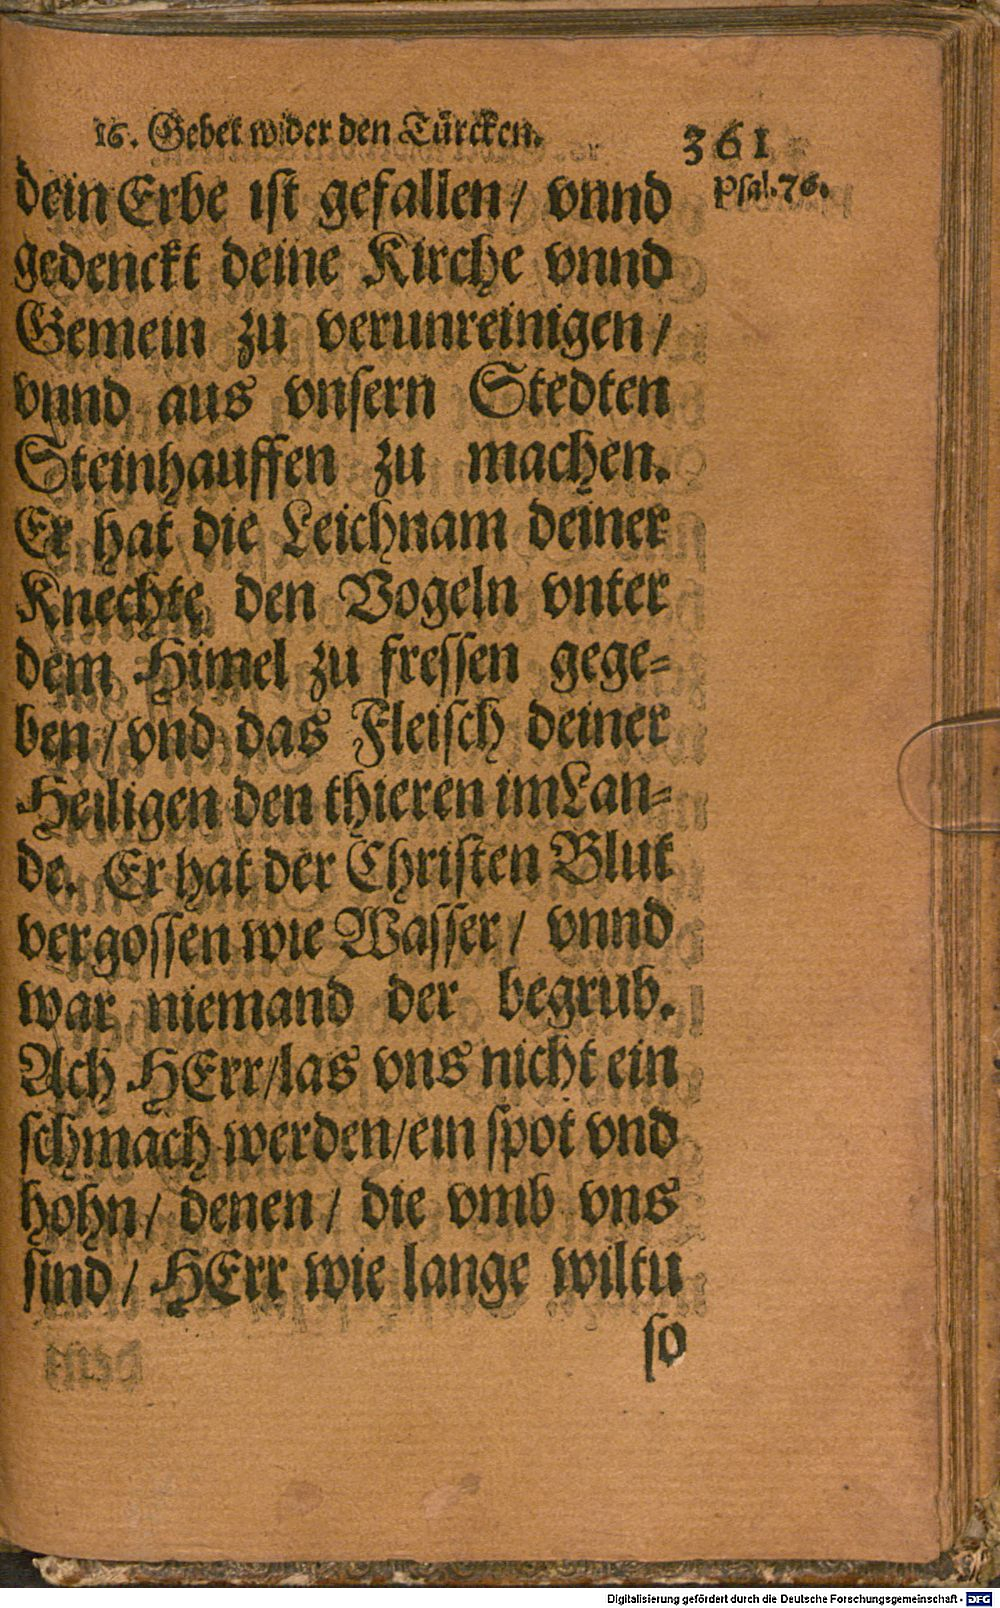 16. Gebet wider den Türcken.
361
dein Erbe ist gefallen / vnnd
Psal. 76.
gedenckt deine Kirche vnnd
Gemein zu verunreinigen /
vnnd aus vnsern Stedten
Steinhauffen zu machen.
Er hat die Leichnam deiner
Knechte den Vogeln vnter
dem Himel zu fressen gege-
ben / vnd das Fleisch deiner
Heiligen den thieren im Lan-
de. Er hat der Christen Blut
vergossen wie Wasser / vnnd
war niemand der begrub.
Ach HErr / las vns nicht ein
schmach werden / ein spot vnd
hohn / denen / die vmb vns
sind / HErr wie lange wiltu
so
Digitalisierung gefördert durch die Deutsche Forschungsgemeinschaft - DFG